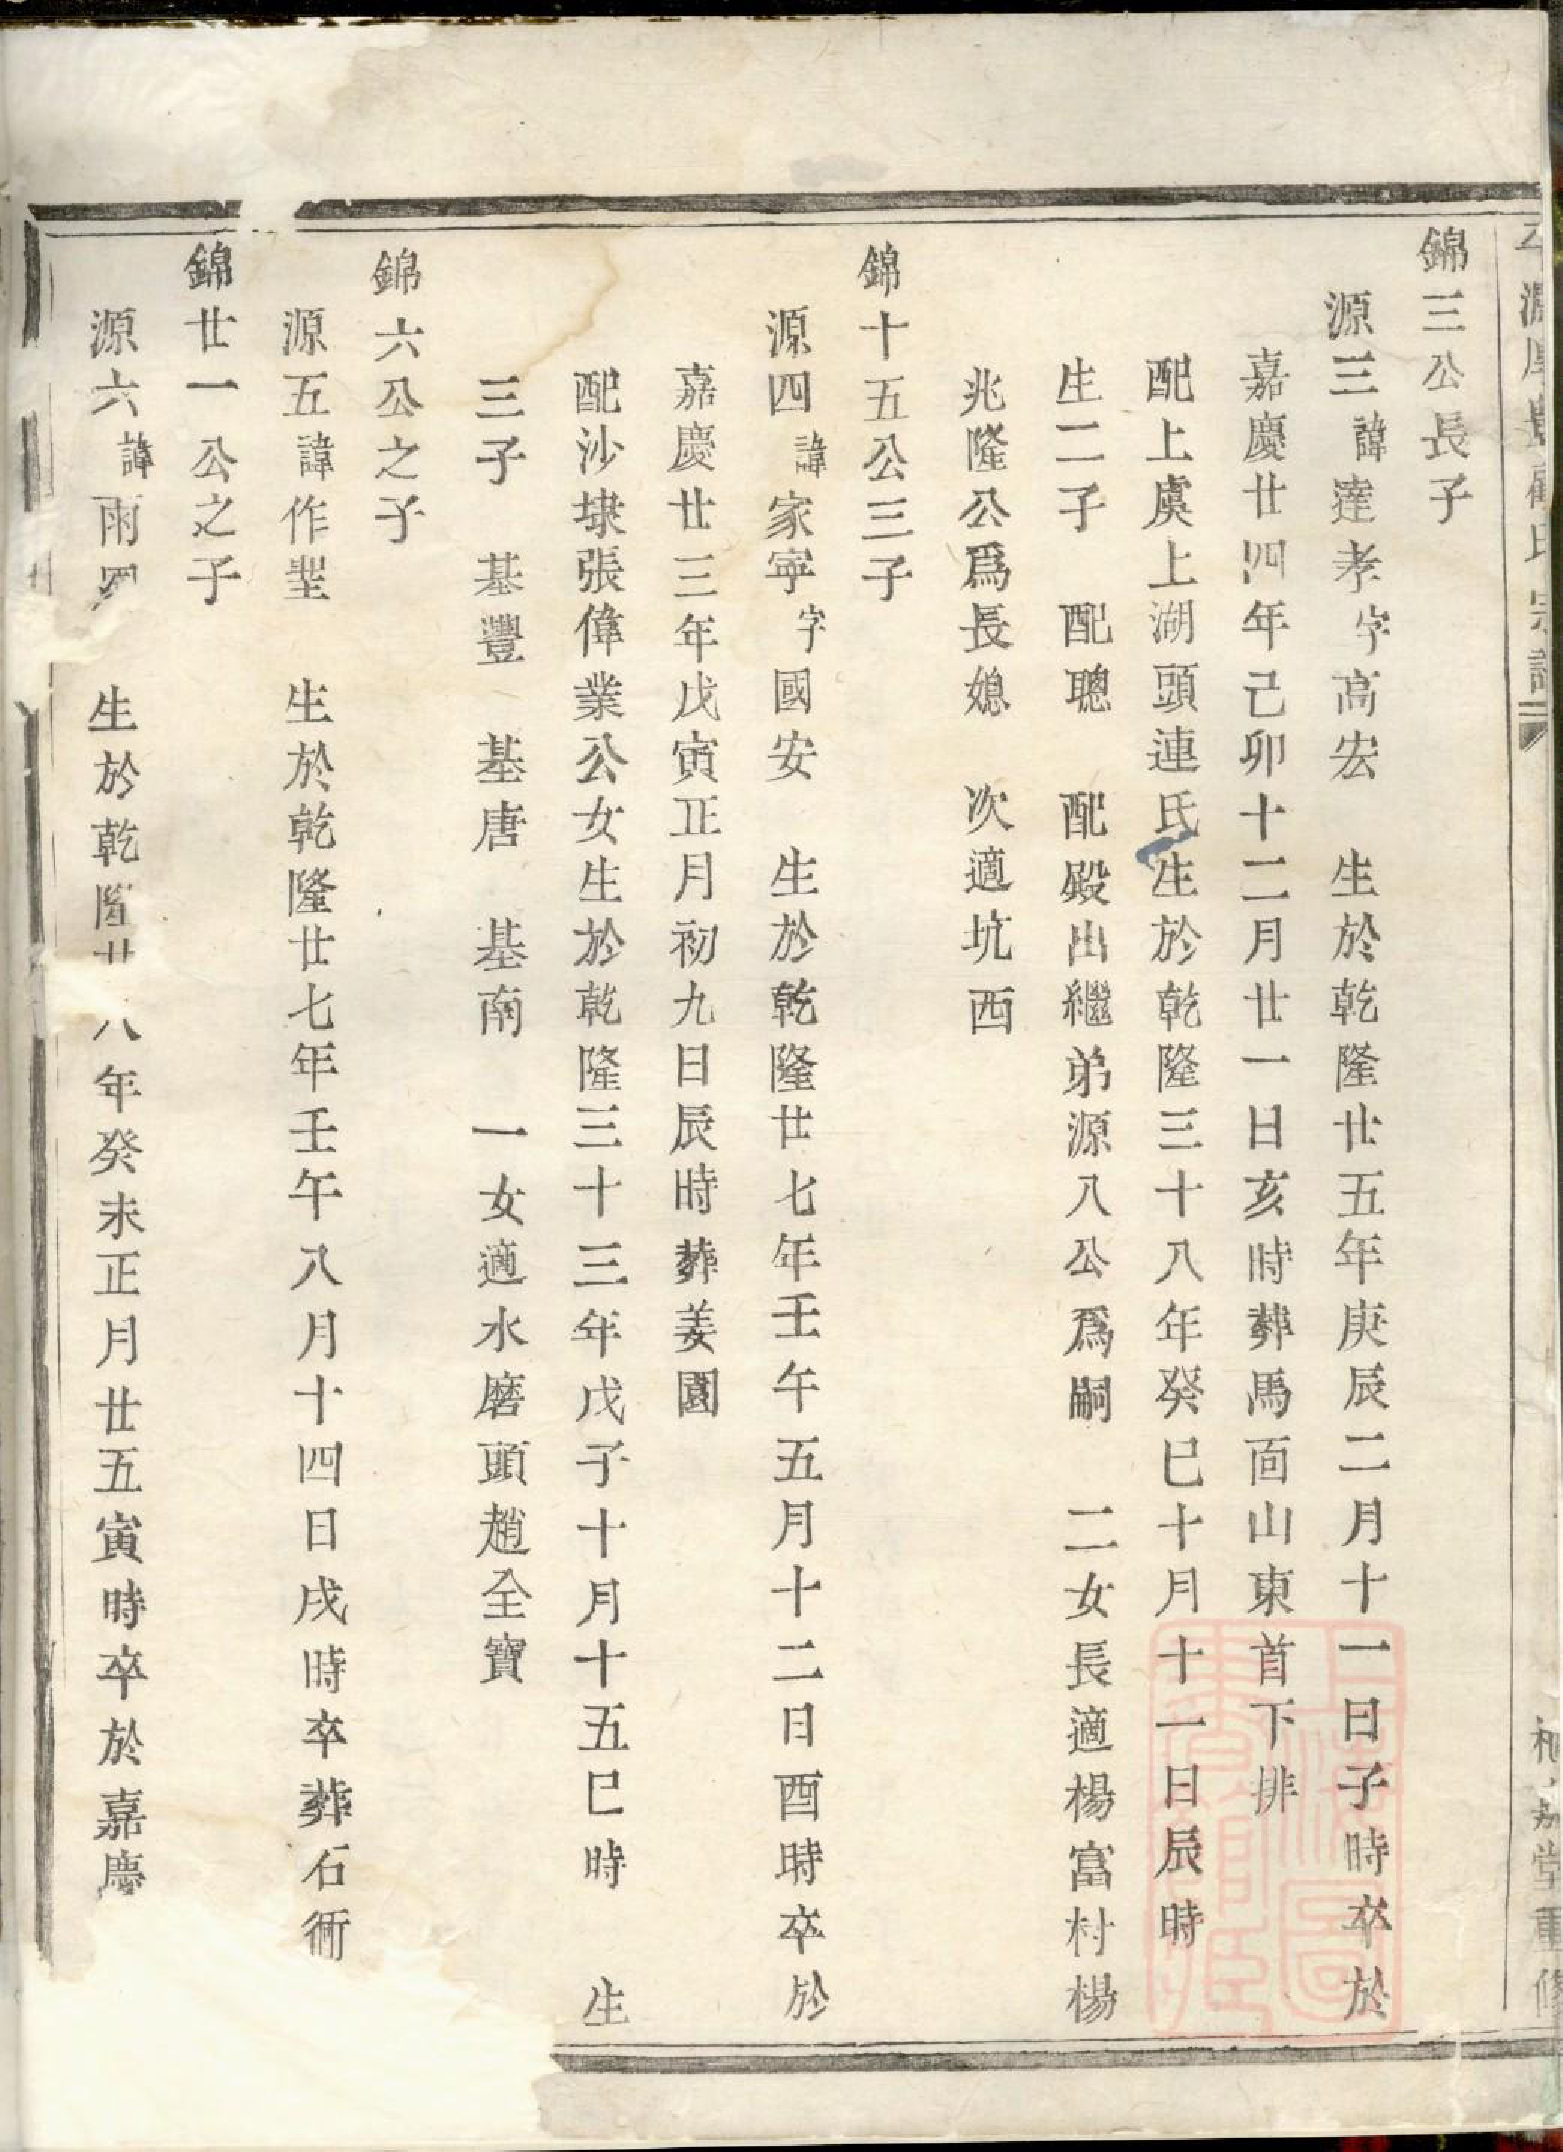 錦三公長子
源三諱達孝字高宏　生於乾隆廿五年庚辰二月十一日子時卒於
嘉慶廿四年己卯十二月廿一日亥時葬馬面山東首下排
配上虞上湖頭連氏生於乾隆三十八年癸巳十月十一日辰時
生二子　配聰　配殿出繼弟源八公爲嗣　二女長適楊富村楊
兆隆公爲長媳　次適坑西
錦十五公三子
源四諱家寧字國安　生於乾隆廿七年壬午五月十二日酉時卒於
嘉慶廿三年戊寅正月初九日辰時葬姜園
配沙埭張偉業公女生於乾隆三十三年戊子十月十五巳時　生
三子　基豐　基唐　基南　一女適水磨頭趙全寶
錦六公之子
源五諱作壆　生於乾隆廿七年壬午八月十四日戌時卒葬石衕
錦廿一公之子
源六諱雨　生於乾隆廿八年癸未正月廿五寅時卒於嘉慶